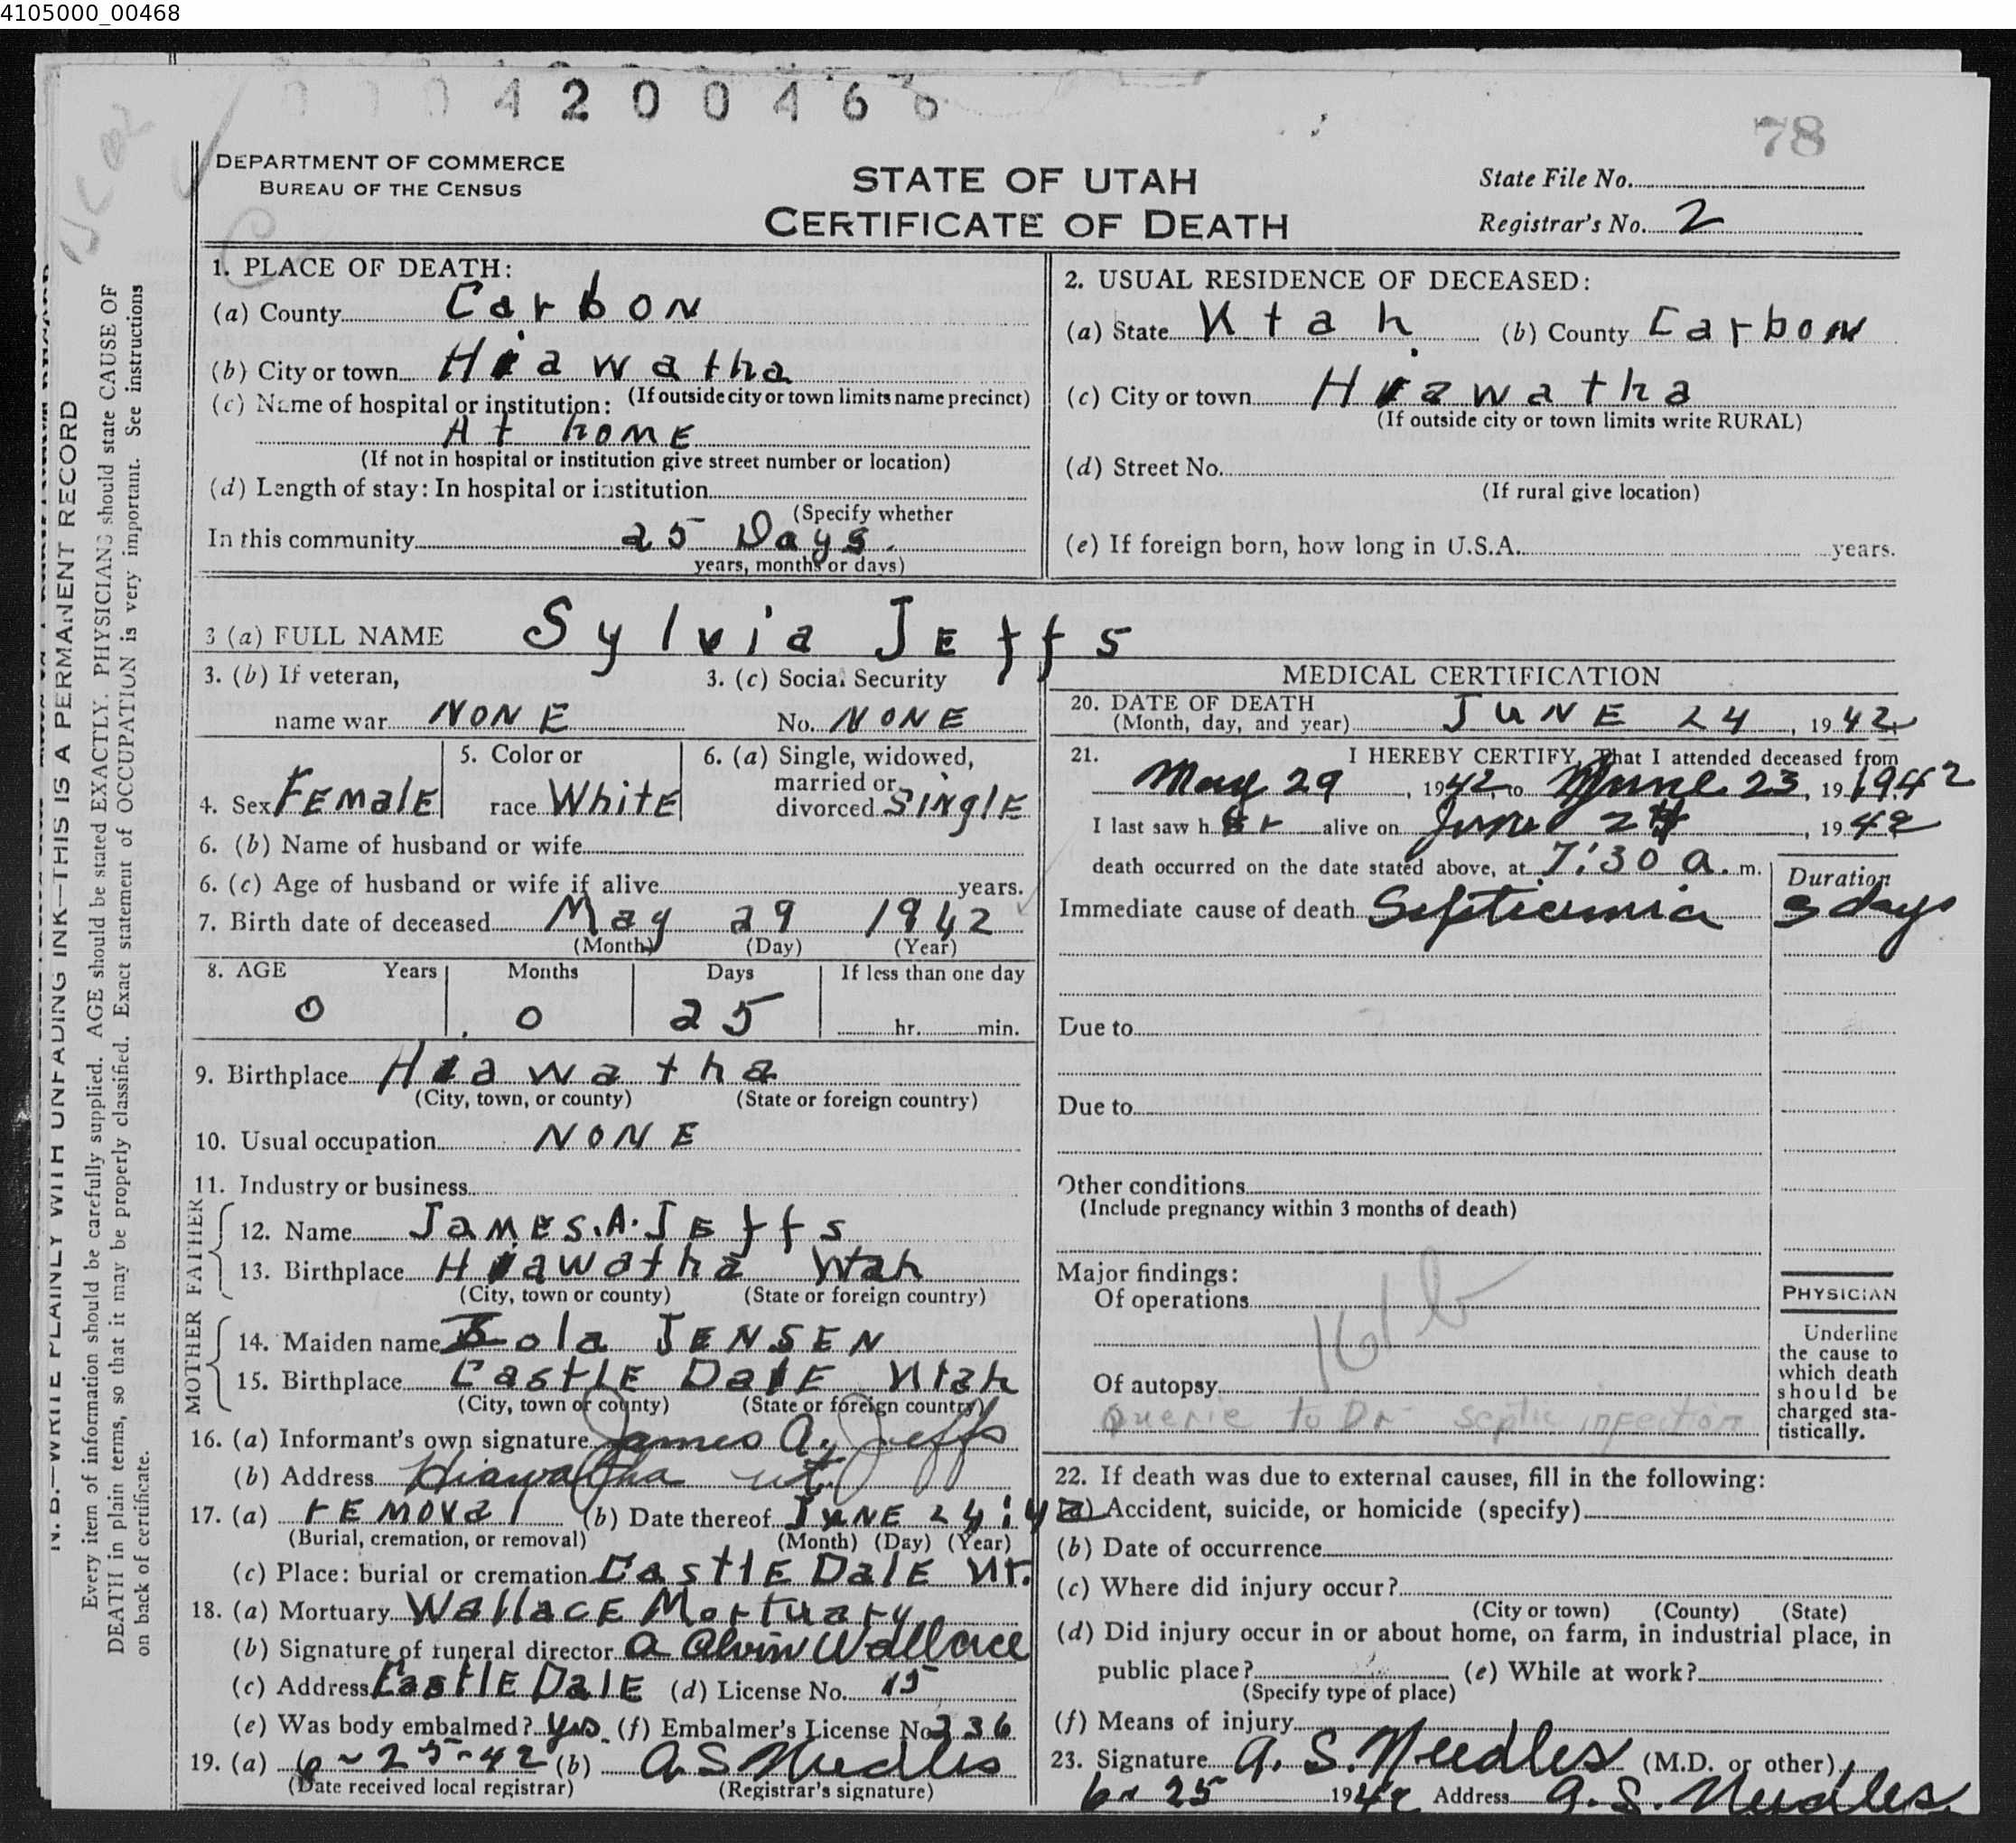 4105000_00468
4 2 0 0 4 6
78
DEPARTMENT OF COMMERCE
BUREAU OF THE CENSUS
STATE OF UTAH
CERTIFICATE OF DEATH
State File No.
Registrar's No. 2
N. B.—WRITE PLAINLY WITH UNFADING INK—THIS IS A PERMANENT RECORD
Every item of information should be carefully supplied. AGE should be stated EXACTLY. PHYSICIANS should state CAUSE OF
DEATH in plain terms, so that it may be properly classified. Exact statement of OCCUPATION is very important. See instructions
on back of certificate.
1. PLACE OF DEATH:
(a) County Carbon
(b) City or town Hiawatha
(If outside city or town limits name precinct)
(c) Name of hospital or institution:
At home
(If not in hospital or institution give street number or location)
(d) Length of stay: In hospital or institution
(Specify whether
In this community 25 Days.
years, months or days)
2. USUAL RESIDENCE OF DECEASED:
(a) State Utah (b) County Carbon
(c) City or town Hiawatha
(If outside city or town limits write RURAL)
(d) Street No.
(If rural give location)
(e) If foreign born, how long in U.S.A. years.
3 (a) FULL NAME Sylvia Jeffs
3. (b) If veteran,
name war NONE
3. (c) Social Security
No. NONE
4. Sex Female
5. Color or
race White
6. (a) Single, widowed,
married or
divorced Single
6. (b) Name of husband or wife
6. (c) Age of husband or wife if alive years.
7. Birth date of deceased May 29 1942
(Month) (Day) (Year)
8. AGE Years Months Days If less than one day
0 0 25 hr. min.
9. Birthplace Hiawatha
(City, town, or county) (State or foreign country)
10. Usual occupation NONE
11. Industry or business
FATHER
12. Name James.A.Jeffs
13. Birthplace Hiawatha Utah
(City, town or county) (State or foreign country)
MOTHER
14. Maiden name Zola JENSEN
15. Birthplace Castle Dale Utah
(City, town or county) (State or foreign country)
16. (a) Informant's own signature James A. Jeffs
(b) Address Hiawatha Ut.
17. (a) removal (b) Date thereof June 24:42
(Burial, cremation, or removal) (Month) (Day) (Year)
(c) Place: burial or cremation Castle Dale Ut.
18. (a) Mortuary Wallace Mortuary
(b) Signature of funeral director A Alvin Wallace
(c) Address Castle Dale (d) License No. 15
(e) Was body embalmed? Yes. (f) Embalmer's License No 236
19. (a) 6-25-42 (b) A. S. Needles
(Date received local registrar) (Registrar's signature)
MEDICAL CERTIFICATION
20. DATE OF DEATH
(Month, day, and year) June 24, 1942
21. I HEREBY CERTIFY, That I attended deceased from
May 29, 1942, to June 23, 19 1942
I last saw her alive on June 24, 1942
death occurred on the date stated above, at 7:30 a. m.
Duration
Immediate cause of death Septicemia days
Due to
Due to
Other conditions
(Include pregnancy within 3 months of death)
Major findings:
Of operations
161b
Of autopsy
Querie to Dr - septic infection
PHYSICIAN
Underline
the cause to
which death
should be
charged sta-
tistically.
22. If death was due to external causes, fill in the following:
(a) Accident, suicide, or homicide (specify)
(b) Date of occurrence
(c) Where did injury occur?
(City or town) (County) (State)
(d) Did injury occur in or about home, on farm, in industrial place, in
public place? (e) While at work?
(Specify type of place)
(f) Means of injury
23. Signature A. S. Needles (M.D. or other)
6-25 1942 Address A. S. Needles